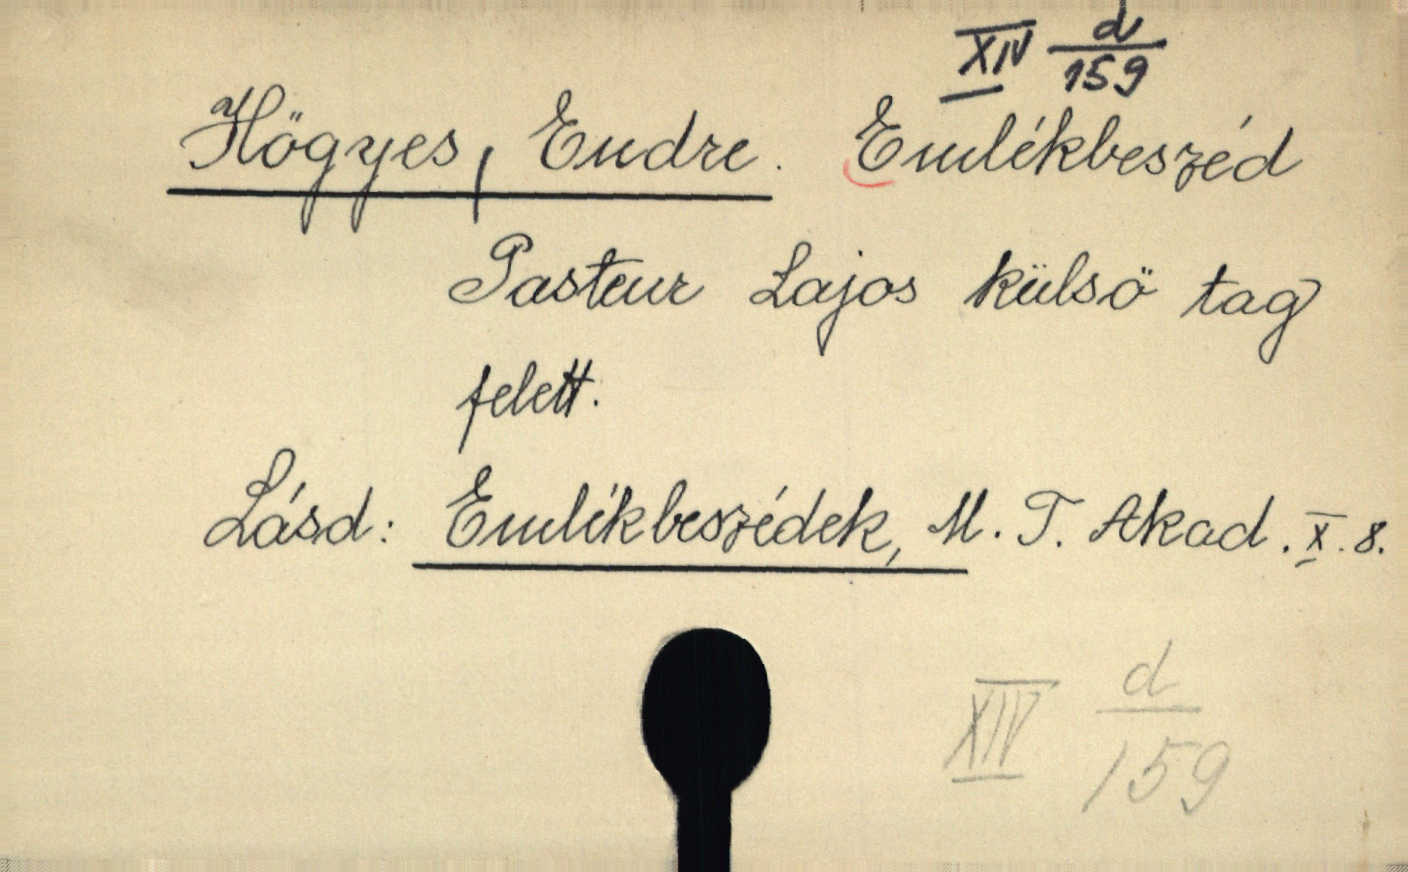 XIV d/159
Högyes, Endre. Emlékbeszéd
Pasteur Lajos külsö tag
felett.
Lásd: Emlékbeszédek, M. T. Akad. X. 8.
XIV d/159